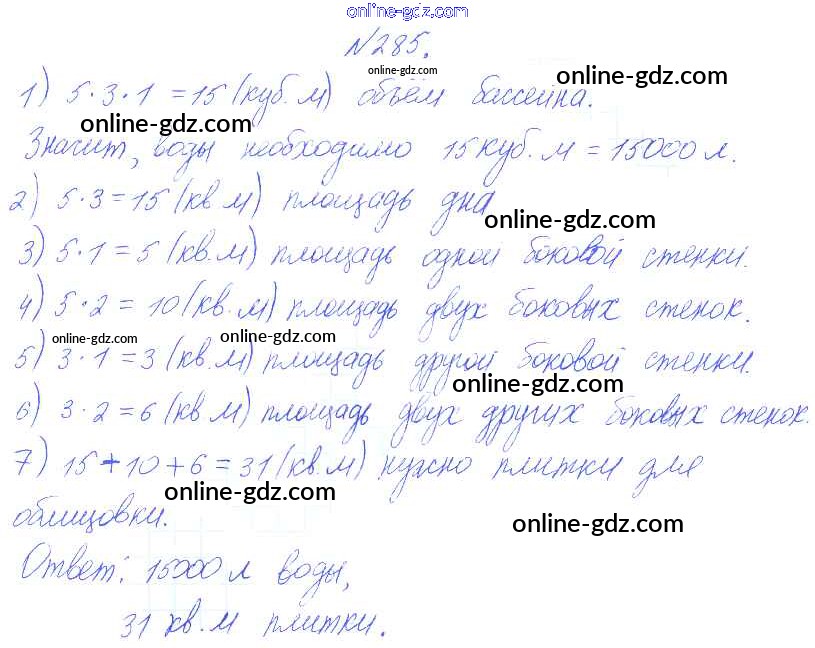 online-gdz.com
№285.
online-gdz.com
online-gdz.com
1) 5·3·1 = 15 (куб. м) объём бассейна.
online-gdz.com
Значит, воды необходимо 15 куб. м = 15000 л.
2) 5·3 = 15 (кв м) площадь дна
online-gdz.com
3) 5·1 = 5 (кв. м) площадь одной боковой стенки.
4) 5·2 = 10 (кв. м) площадь двух боковых стенок.
online-gdz.com online-gdz.com
5) 3·1 = 3 (кв м) площадь другой боковой стенки.
online-gdz.com
6) 3·2 = 6 (кв м) площадь двух других боковых стенок.
7) 15 + 10 + 6 = 31 (кв. м) нужно плитки для
online-gdz.com
облицовки.
online-gdz.com
Ответ: 15000 л воды,
31 кв. м плитки.